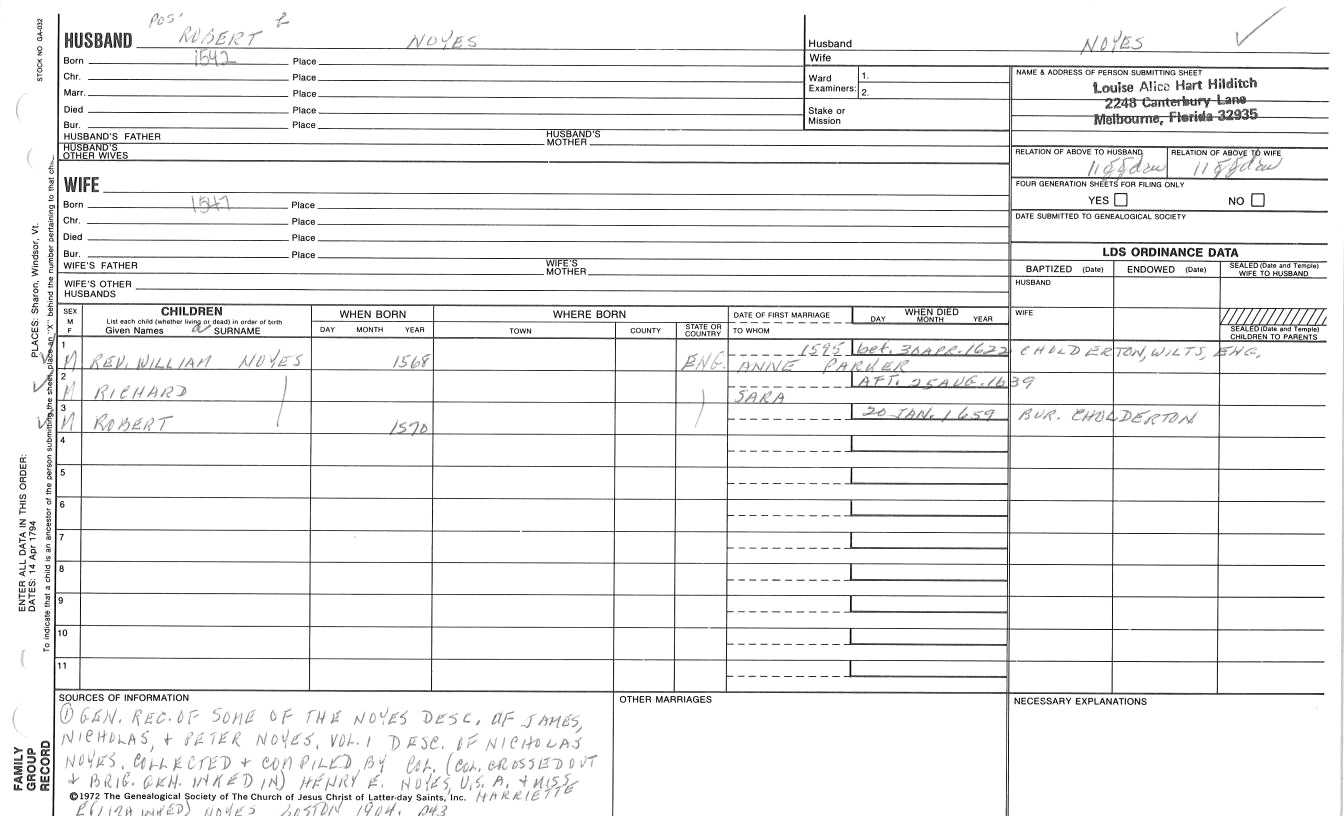 STOCK NO. GA-032
POS'
HUSBAND ROBERT NOYES
Born 1542 Place
Chr. Place
Marr. Place
Died Place
Bur. Place
HUSBAND'S FATHER HUSBAND'S MOTHER
HUSBAND'S OTHER WIVES
Husband NOYES
Wife
Ward Examiners: 1.
2.
Stake or Mission
NAME & ADDRESS OF PERSON SUBMITTING SHEET
Louise Alice Hart Hilditch
2248 Canterbury Lane
Melbourne, Florida 32935
RELATION OF ABOVE TO HUSBAND RELATION OF ABOVE TO WIFE
FOUR GENERATION SHEETS FOR FILING ONLY
YES NO
DATE SUBMITTED TO GENEALOGICAL SOCIETY
WIFE
Born 1547 Place
Chr. Place
Died Place
Bur. Place
WIFE'S FATHER WIFE'S MOTHER
WIFE'S OTHER HUSBANDS
LDS ORDINANCE DATA
BAPTIZED (Date) ENDOWED (Date) SEALED (Date and Temple) WIFE TO HUSBAND
HUSBAND
WIFE
SEALED (Date and Temple) CHILDREN TO PARENTS
SEX M F
CHILDREN
List each child (whether living or dead) in order of birth
Given Names SURNAME
WHEN BORN
DAY MONTH YEAR
WHERE BORN
TOWN COUNTY STATE OR COUNTRY
DATE OF FIRST MARRIAGE
TO WHOM
WHEN DIED
DAY MONTH YEAR
1 1595 bet. 30 APR. 1622 CHOLDERTON, WILTS, ENG.
M REV. WILLIAM NOYES 1568 ENG. ANNE PARKER
2 AFT. 25 AUG. 1639
M RICHARD SARA
3 20 JAN. 1659 BUR. CHOLDERTON
M ROBERT 1570
4
5
6
7
8
9
10
11
SOURCES OF INFORMATION
① GEN. REC. OF SOME OF THE NOYES DESC. OF JAMES,
NICHOLAS, + PETER NOYES, VOL. 1 DESC. OF NICHOLAS
NOYES. COLLECTED + COMPILED BY COL. (COL. CROSSED OUT
+ BRIG. GEN. INKED IN) HENRY E. NOYES, U.S.A. + MISS
HARRIETTE
E(LIZA INKED) NOYES BOSTON 1904. P43
©1972 The Genealogical Society of The Church of Jesus Christ of Latter-day Saints, Inc.
OTHER MARRIAGES
NECESSARY EXPLANATIONS
ENTER ALL DATA IN THIS ORDER:
DATES: 14 Apr 1794
PLACES: Sharon, Windsor, Vt.
To indicate that a child is an ancestor of the person submitting the sheet, place an "X" behind the number pertaining to that
FAMILY GROUP RECORD